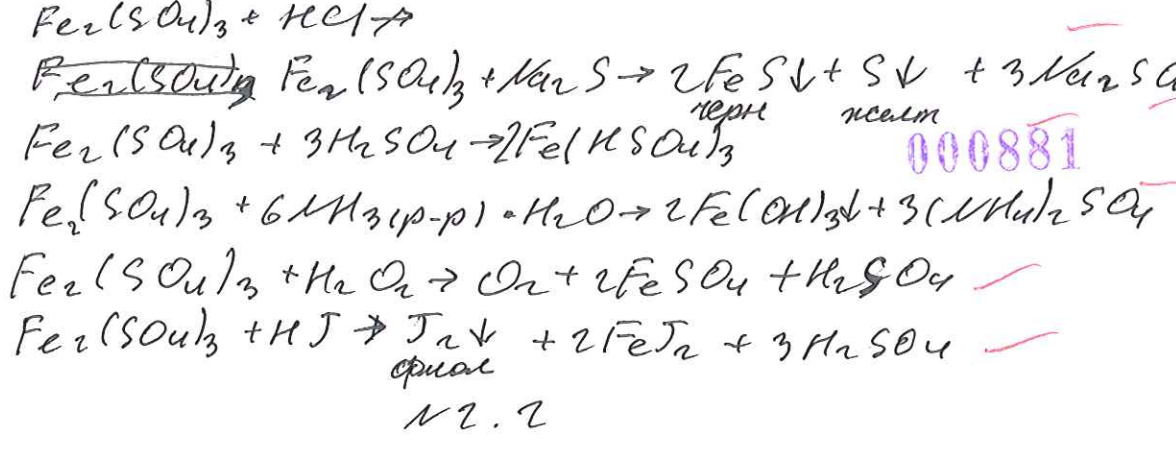 Fe₂(SO₄)₃ + HCl ↛
Fe₂(SO₄)₃ Fe₂(SO₄)₃ + Na₂S → 2FeS↓ + S↓ + 3Na₂SO
черн желт
Fe₂(SO₄)₃ + 3H₂SO₄ → 2Fe(HSO₄)₃
000881
Fe₂(SO₄)₃ + 6NH₃(р-р) · H₂O → 2Fe(OH)₃↓ + 3(NH₄)₂SO₄
Fe₂(SO₄)₃ + H₂O₂ → O₂ + 2FeSO₄ + H₂SO₄
Fe₂(SO₄)₃ + HJ → J₂↓ + 2FeJ₂ + 3H₂SO₄
фиол
N2.2